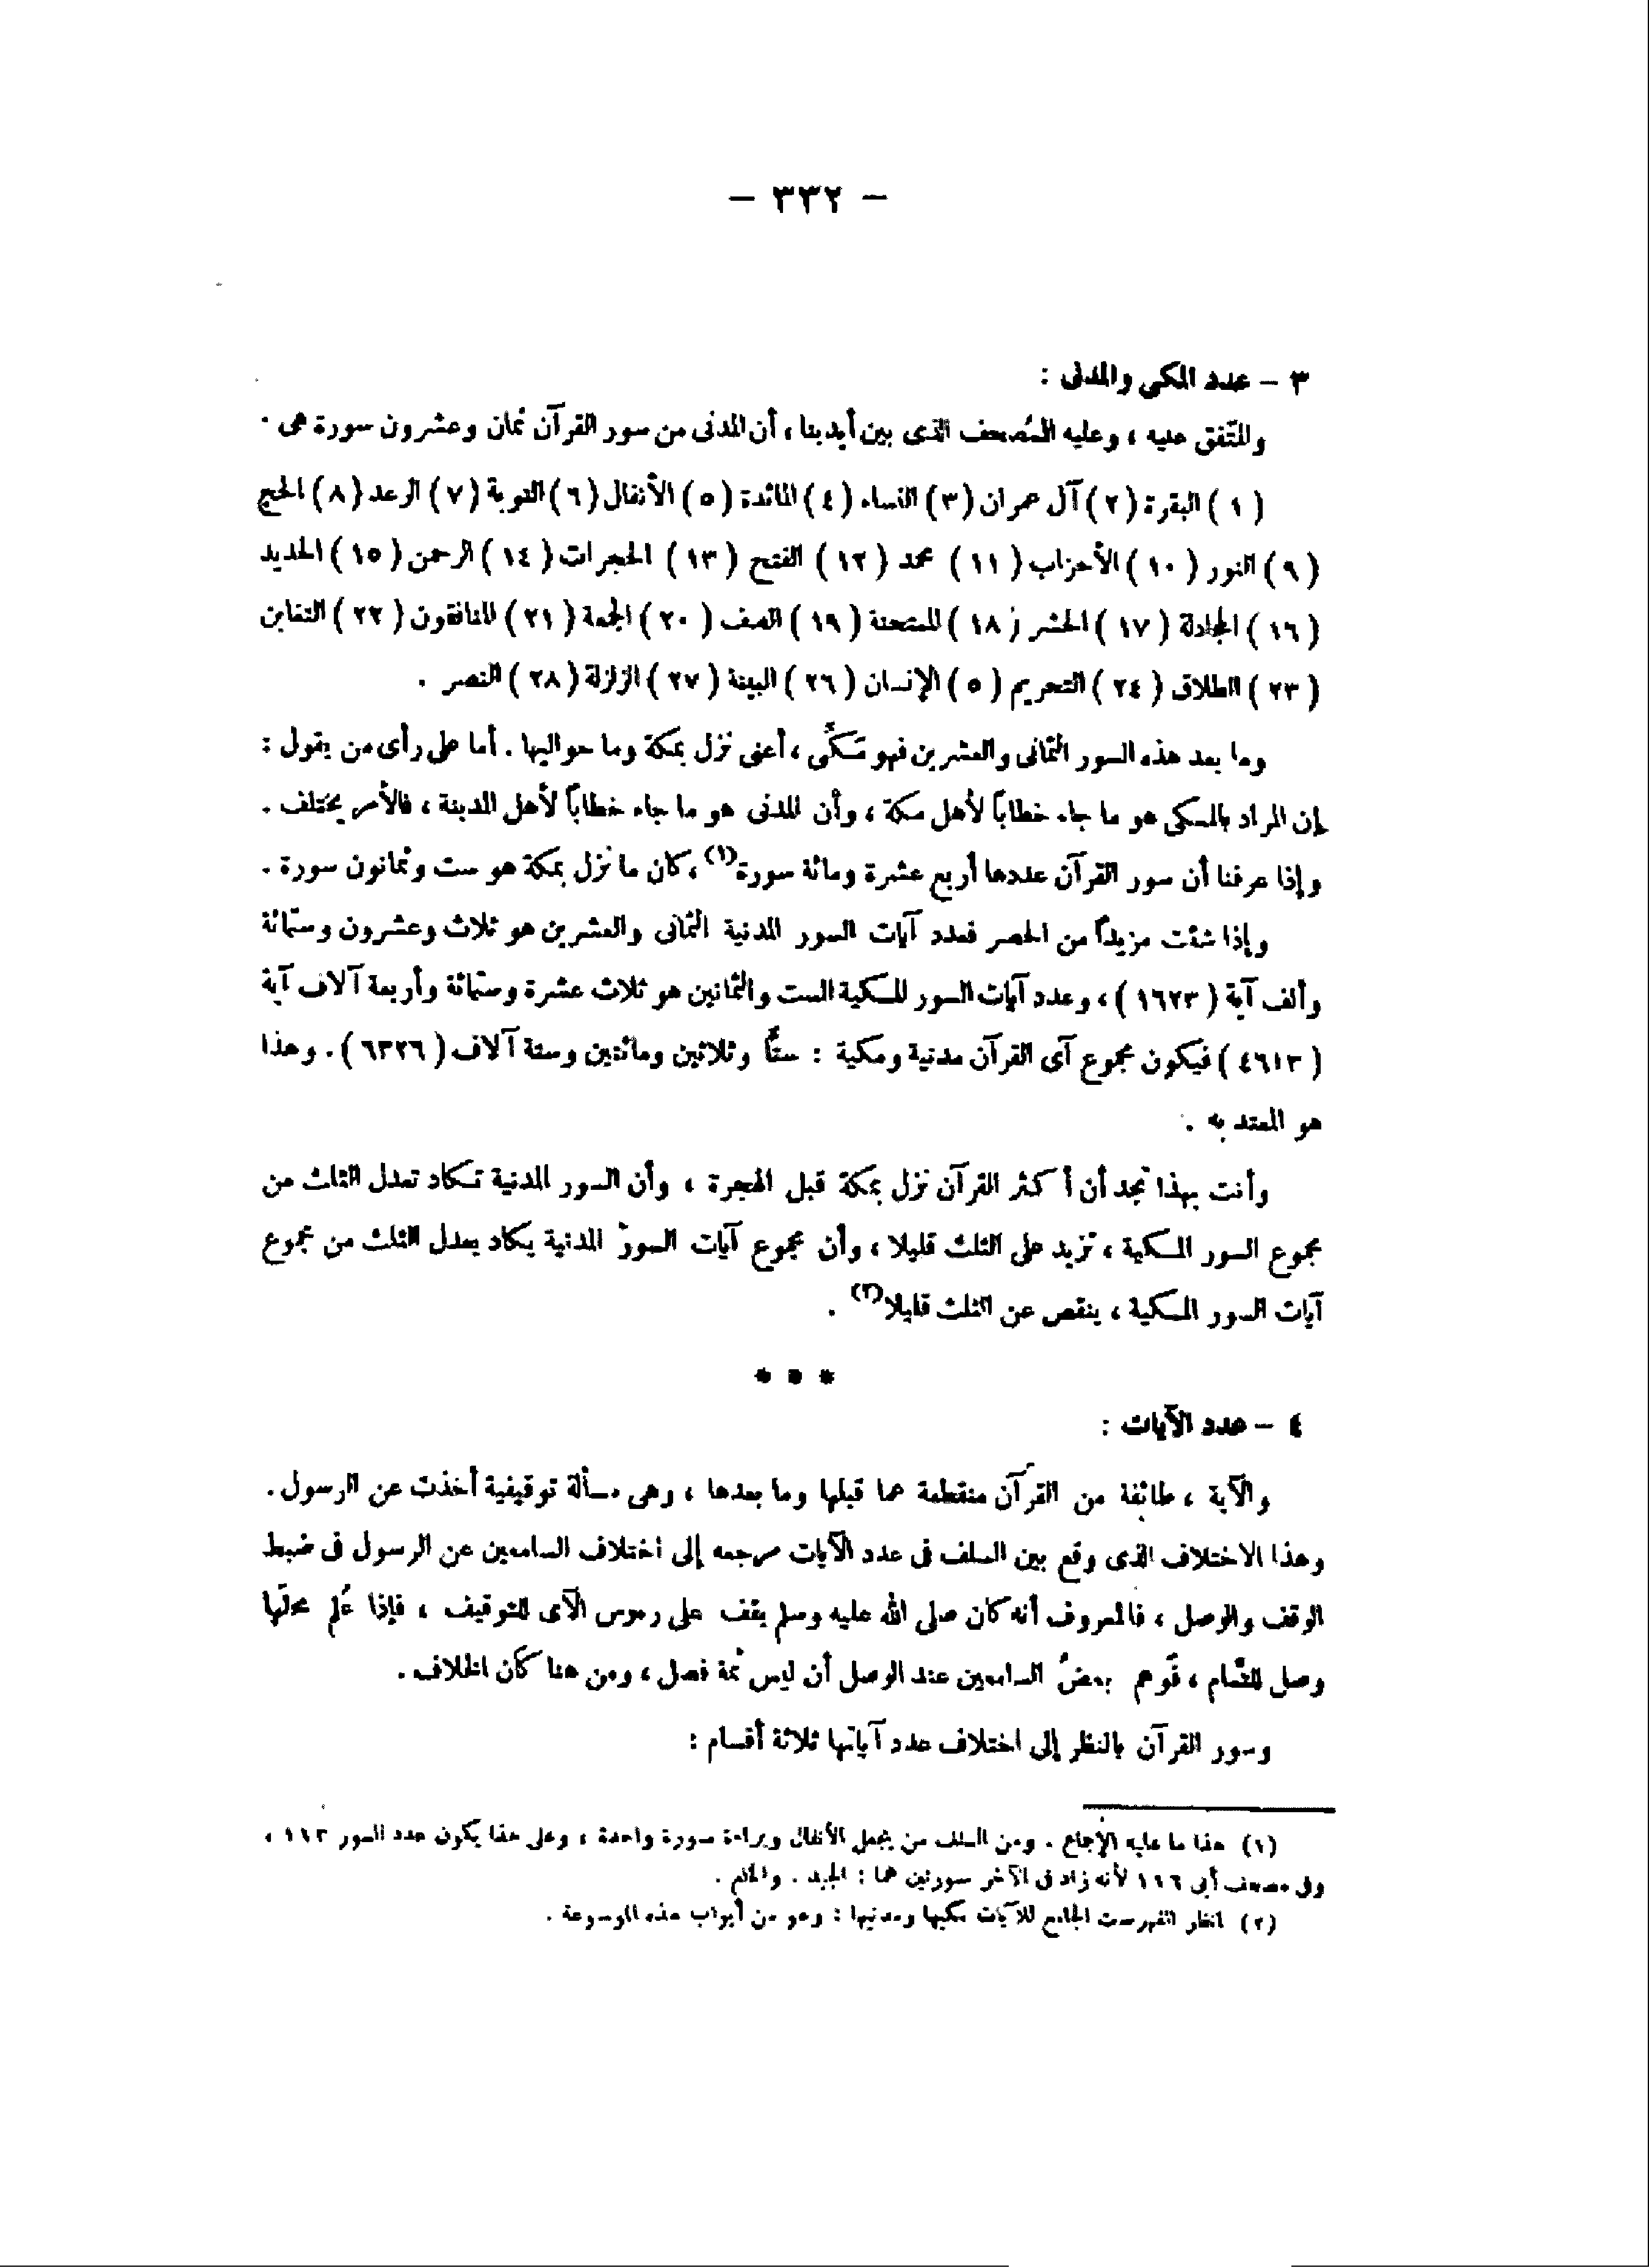 — ٣٣٢ —
٣ — عدد المكى والمدنى :
والمتّفق عليه ، وعليه المُصحف الذى بين أيدينا ، أن المدنى من سور القرآن ثمان وعشرون سورة هى .
( ١ ) البقرة ( ٢ ) آل عمران ( ٣ ) النساء ( ٤ ) المائدة ( ٥ ) الأنفال ( ٦ ) التوبة ( ٧ ) الرعد ( ٨ ) الحج
( ٩ ) النور ( ١٠ ) الأحزاب ( ١١ ) محمد ( ١٢ ) الفتح ( ١٣ ) الحجرات ( ١٤ ) الرحمن ( ١٥ ) الحديد
( ١٦ ) المجادلة ( ١٧ ) الحشر ( ١٨ ) الممتحنة ( ١٩ ) الصف ( ٢٠ ) الجمعة ( ٢١ ) المنافقون ( ٢٢ ) التغابن
( ٢٣ ) الطلاق ( ٢٤ ) التحريم ( ٥ ) الإنسان ( ٢٦ ) البينة ( ٢٧ ) الزلزلة ( ٢٨ ) النصر .
وما بعد هذه السور الثمانى والعشرين فهو مَكىٌّ ، أعنى نزل بمكة وما حواليها . أما على رأى من يقول :
إن المراد بالمكى هو ما جاء خطاباً لأهل مكة ، وأن المدنى هو ما جاء خطاباً لأهل المدينة ، فالأمر يختلف .
وإذا عرفنا أن سور القرآن عددها أربع عشرة ومائة سورة(١) ، كان ما نزل بمكة هو ست وثمانون سورة .
وإذا شئت مزيداً من الحصر فعدد آيات السور المدنية الثمانى والعشرين هو ثلاث وعشرون وستمائة
وألف آية ( ١٦٢٣ ) ، وعدد آيات السور المكية الست والثمانين هو ثلاث عشرة وستمائة وأربعة آلاف آية
( ٤٦١٣ ) فيكون مجموع آى القرآن مدنية ومكية : ستًّا وثلاثين ومائتين وستة آلاف ( ٦٣٢٦ ) . وهذا
هو المعتد به .
وأنت بهذا تجد أن أكثر القرآن نزل بمكة قبل الهجرة ، وأن السور المدنية تكاد تعدل الثلث من
مجموع السور المكية ، تزيد على الثلث قليلا ، وأن مجموع آيات السور المدنية يكاد يعدل الثلث من مجموع
آيات السور المكية ، ينقص عن الثلث قليلا(٢) .
* * *
٤ — عدد الآيات :
والآية ، طائفة من القرآن منقطعة عما قبلها وما بعدها ، وهى مسألة توقيفية أخذت عن الرسول .
وهذا الاختلاف الذى وقع بين السلف فى عدد الآيات مرجعه إلى اختلاف السامعين عن الرسول فى ضبط
الوقف والوصل ، فالمعروف أنه كان صلى الله عليه وسلم يقف على رءوس الآى للتوقيف ، فإذا عُلم محلّها
وصل للتّمام ، فوهم بعضُ السامعين عند الوصل أن ليس ثمة فصل ، ومن هنا كان الخلاف .
وسور القرآن بالنظر إلى اختلاف عدد آياتها ثلاثة أقسام :
(١) هذا ما عليه الإجماع . ومن السلف من يجعل الأنفال وبراءة سورة واحدة ، وعلى هذا يكون عدد السور ١١٣ ،
وفى مصحف أبى ١١٦ لأنه زاد فى الآخر سورتين هما : . والخلع .
(٢) انظر الفهرست الجامع للآيات مكيها ومدنيها : وهو من أبواب هذه الموسوعة .